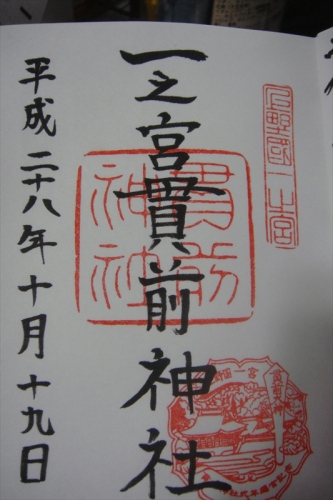 上野國一之宮
一之宮貫前神社
貫前
神社
平成二十八年十月十九日